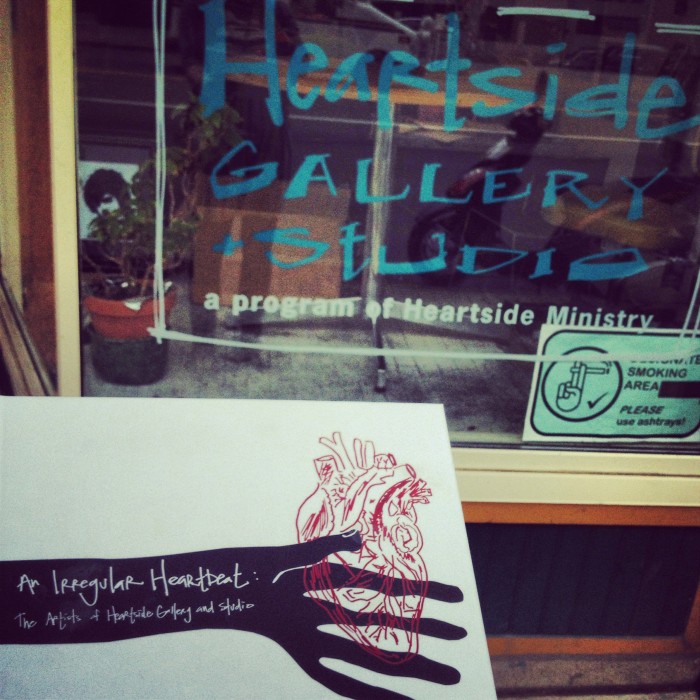 Heartside
GALLERY
+ STUDIO
a program of Heartside Ministry
DESIGNATE
SMOKING
AREA
PLEASE
use ashtrays!
An Irregular Heartbeat:
The Artists of Heartside Gallery and Studio